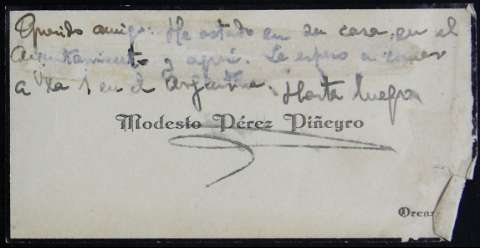 Querido amigo: He estado en su casa, en el
Ayuntamiento y aquí. Le espero a comer
a la 1 en el Argentina. Hasta luego
Modesto Pérez Piñeyro
Orense